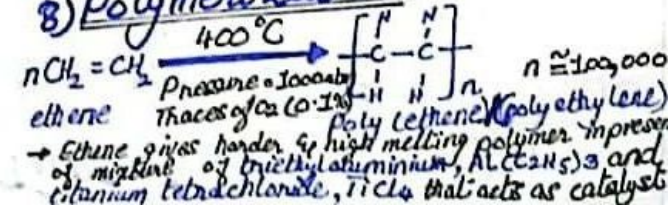 8) Polyme
400°C
nCH2 = CH2
H H
-C-C-
H H
n
n ≅ 100,000
Pressure = 1000atm
Traces of O2 (0.1%)
ethene
Poly (ethene) (poly ethylene)
→ Ethene gives harder & high melting polymer inpresen
of mixture of triethylaluminium, Al(C2H5)3 and
titanium tetrachloride, TiCl4 that acts as catalyst